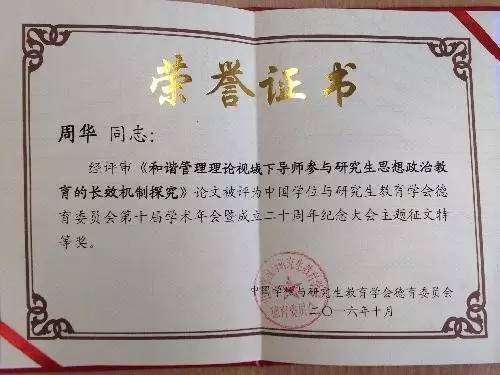 荣誉证书
周华 同志:
经评审《和谐管理理论视域下导师参与研究生思想政治教
育的长效机制探究》论文被评为中国学位与研究生教育学会德
育委员会第十届学术年会暨成立二十周年纪念大会主题征文特
等奖。
中国学位与研究生教育学会德育委员会
二〇一六年十月
德育委员会